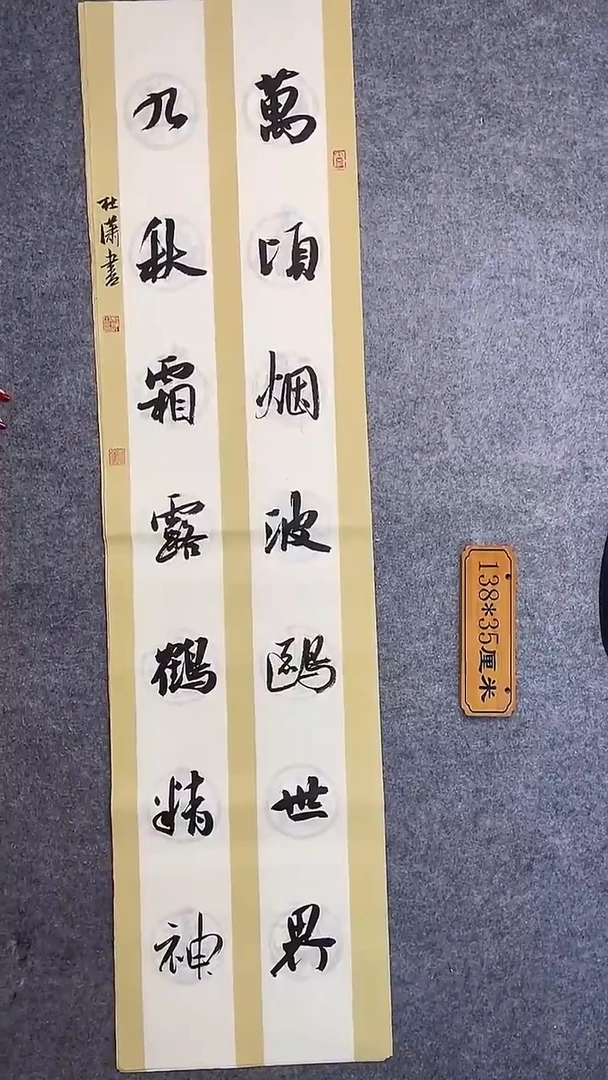 萬頃烟波鷗世界
九秋霜露鶴精神
杜潇書
138*35厘米